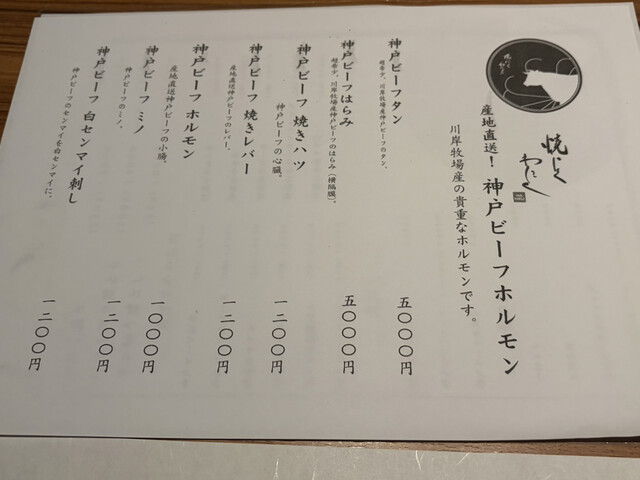 焼にく
わにく
産地直送！ 神戸ビーフホルモン
川岸牧場産の貴重なホルモンです。
神戸ビーフタン 五〇〇〇円
超希少、川岸牧場産神戸ビーフのタン。
神戸ビーフはらみ 五〇〇〇円
超希少、川岸牧場産神戸ビーフのはらみ（横隔膜）。
神戸ビーフ 焼きハツ 一二〇〇円
神戸ビーフの心臓。
神戸ビーフ 焼きレバー 一二〇〇円
産地直送神戸ビーフのレバー。
神戸ビーフ ホルモン 一〇〇〇円
産地直送神戸ビーフの小腸。
神戸ビーフ ミノ 一二〇〇円
神戸ビーフのミノ。
神戸ビーフ 白センマイ刺し 一二〇〇円
神戸ビーフのセンマイを白センマイに。